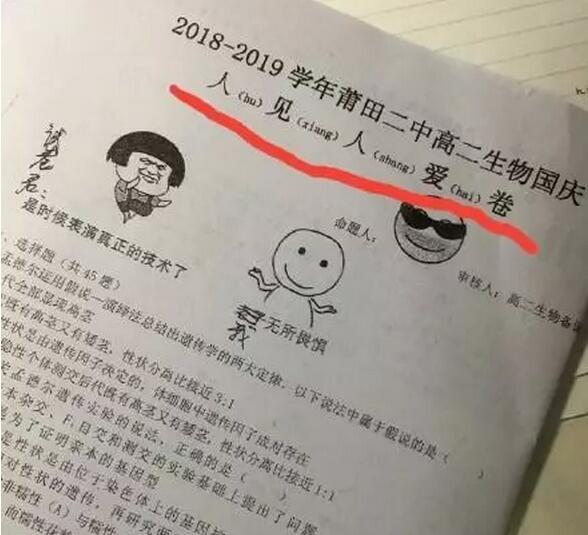 2018-2019 学年莆田二中高二生物国庆
人(hu)见(xiang)人(shang)爱(hai)卷
试卷君：
是时候表演真正的技术了
命题人：
审核人：高二生物备
我无所畏惧
、选择题（共45题）
孟德尔运用假说一演绎法总结出遗传学的两大定律，以下说法中属于假说的是（ ）
代全部显现高茎
既有高茎又有矮茎，性状分离比接近3:1
性状是由遗传因子决定的，体细胞中遗传因子成对存在
隐性个体测交后代既有高茎又有矮茎，性状分离比接近1:1
孟德尔遗传实验的说法，正确的是（ ）
本杂交、F₁自交和测交的实验基础上提出了问题
是为了证明亲本的基因型
是性状是由位于染色体上的基因
对性状的遗传，再研究两
非糯性（A）与糯性
而糯性花